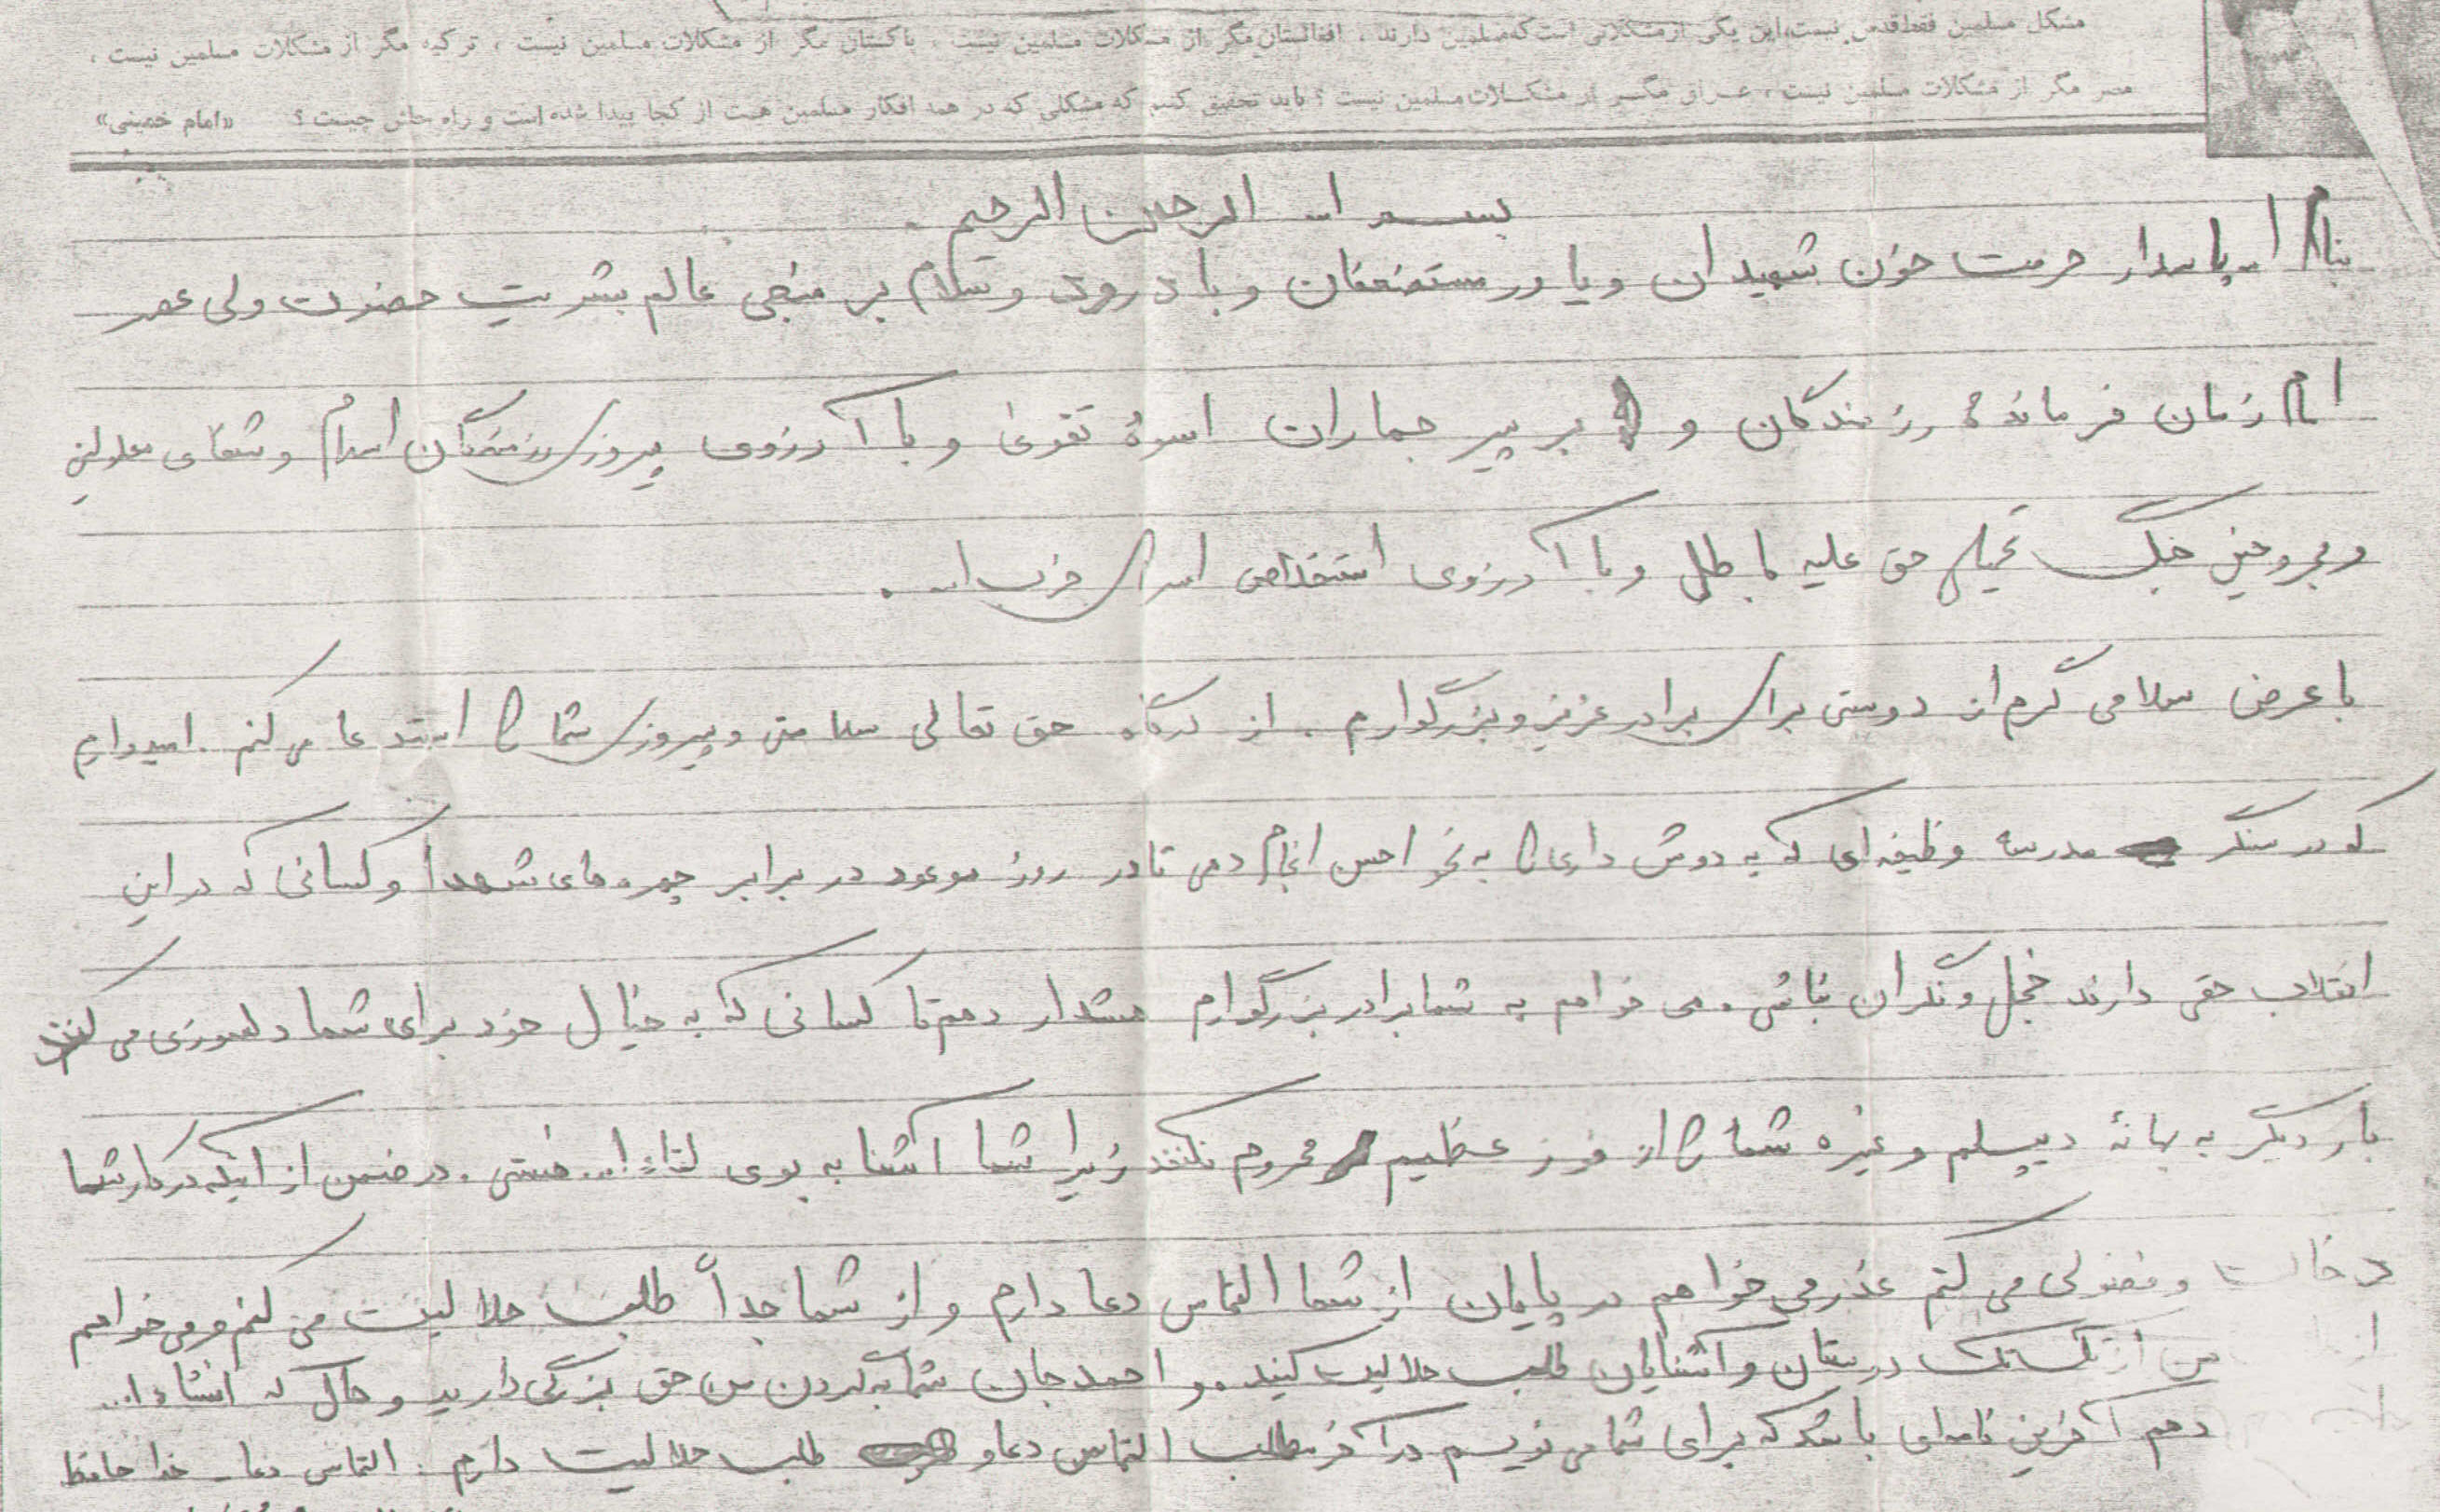 مشکل مسلمین فقط قدس نیست، این یکی از مشکلاتی است که مسلمین دارند ، افغانستان مگر از مشکلات مسلمین نیست ، پاکستان مگر از مشکلات مسلمین نیست ، ترکیه مگر از مشکلات مسلمین نیست ،
مصر مگر از مشکلات مسلمین نیست ، عراق مگر از مشکلات مسلمین نیست ؟ باید تحقیق کنیم که مشکلی که در همه افکار مسلمین هست از کجا پیدا شده است و راه حلش چیست ؟ «امام خمینی»
بسم الله الرحمن الرحیم .
بنام الله پاسدار حرمت خون شهیدان و یاور مستضعفان و با درود و سلام بر منجی عالم بشریت حضرت ولی عصر
امام زمان فرماندهٔ رزمندگان و بر پیر جماران اسوهٔ تقوی و با آرزوی پیروزی رزمندگان اسلام و شفای معلولین
و مجروحین جنگ تحمیلی حق علیه باطل و با آرزوی استخلاص اسرای حزب الله .
با عرض سلامی گرم از دوستی برای برادر عزیز و بزرگوارم . از درگاه حق تعالی سلامتی و پیروزی شما را استدعا می کنم . امیدوارم
که در سنگر مدرسه وظیفه ای که به دوش داری را به نحو احسن انجام دهی تا در روز موعود در برابر چهره های شهدا و کسانی که در این
انقلاب حقی دارند خجل و نگران نباشی . می خواهم به شما برادر بزرگوارم هشدار دهم تا کسانی که به خیال خود برای شما دلسوزی می کنند
بار دیگر به بهانهٔ دیپلم و غیره شما را از فوز عظیم محروم نکنند زیرا شما آشنا به بوی لقاءالله هستی . در ضمن از اینکه در کار شما
دخالت و فضولی می کنم عذر می خواهم در پایان از شما التماس دعا دارم و از شما جداً طلب حلالیت می کنم و می خواهم
از من از تک تک دوستان و آشنایان طلب حلالیت کنید . و احمد جان شما به گردن من حق بزرگی دارید و حال که انشاءالله
دهم آخرین نامه ای باشد که برای شما می نویسم در آخر مطلب التماس دعا و طلب حلالیت دارم . التماس دعا - خدا حافظ